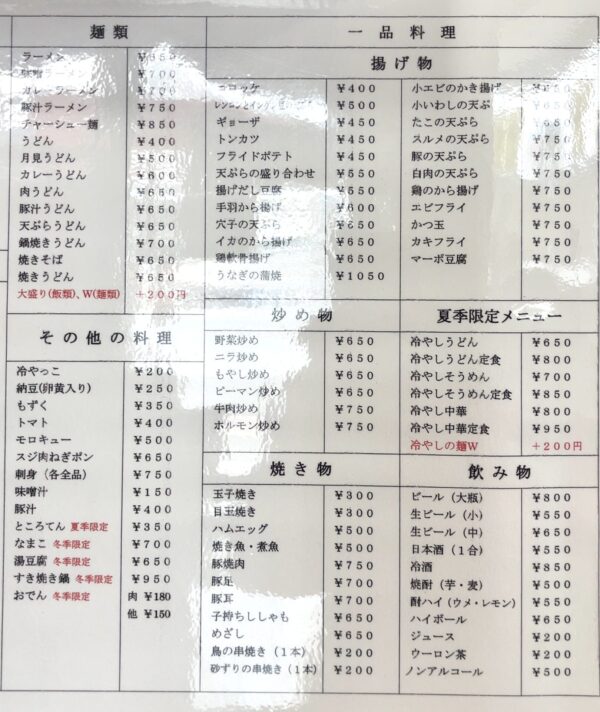 麺類
ラーメン
味噌ラーメン ¥700
カレーラーメン ¥700
豚汁ラーメン ¥750
チャーシュー麺 ¥850
うどん ¥400
月見うどん ¥500
カレーうどん ¥600
肉うどん ¥650
豚汁うどん ¥650
天ぷらうどん ¥650
鍋焼きうどん ¥700
焼きそば ¥650
焼きうどん ¥650
大盛り(飯類)、W(麺類) +200円
その他の料理
冷やっこ ¥200
納豆(卵黄入り) ¥250
もずく ¥350
トマト ¥400
モロキュー ¥500
スジ肉ねぎポン ¥650
刺身(各全品) ¥750
味噌汁 ¥150
豚汁 ¥400
ところてん 夏季限定 ¥350
なまこ 冬季限定 ¥700
湯豆腐 冬季限定 ¥650
すき焼き鍋 冬季限定 ¥950
おでん 冬季限定 肉 ¥180
他 ¥150
一品料理
揚げ物
コロッケ ¥400
¥500
ギョーザ ¥450
トンカツ ¥450
フライドポテト ¥450
天ぷらの盛り合わせ ¥550
揚げだし豆腐 ¥550
手羽から揚げ ¥600
穴子の天ぷら ¥650
イカのから揚げ ¥650
鶏軟骨揚げ ¥650
うなぎの蒲焼 ¥1050
小エビのかき揚げ
小いわしの天ぷ
たこの天ぷら ¥650
スルメの天ぷら ¥750
豚の天ぷら ¥750
白肉の天ぷら ¥750
鶏のから揚げ ¥750
エビフライ ¥750
かつ玉 ¥750
カキフライ ¥750
マーボ豆腐 ¥750
炒め物
野菜炒め ¥650
ニラ炒め ¥650
もやし炒め ¥650
ピーマン炒め ¥650
牛肉炒め ¥750
ホルモン炒め ¥750
夏季限定メニュー
冷やしうどん ¥650
冷やしうどん定食 ¥800
冷やしそうめん ¥700
冷やしそうめん定食 ¥850
冷やし中華 ¥800
冷やし中華定食 ¥950
冷やしの麺W +200円
焼き物
玉子焼き ¥300
目玉焼き ¥300
ハムエッグ ¥500
焼き魚・煮魚 ¥500
豚焼肉 ¥750
豚足 ¥700
豚耳 ¥700
子持ちししゃも ¥650
めざし ¥650
鳥の串焼き(1本) ¥200
砂ずりの串焼き(1本) ¥200
飲み物
ビール(大瓶) ¥800
生ビール(小) ¥550
生ビール(中) ¥650
日本酒(1合) ¥550
冷酒 ¥850
焼酎(芋・麦) ¥500
酎ハイ(ウメ・レモン) ¥550
ハイボール ¥650
ジュース ¥200
ウーロン茶 ¥200
ノンアルコール ¥500